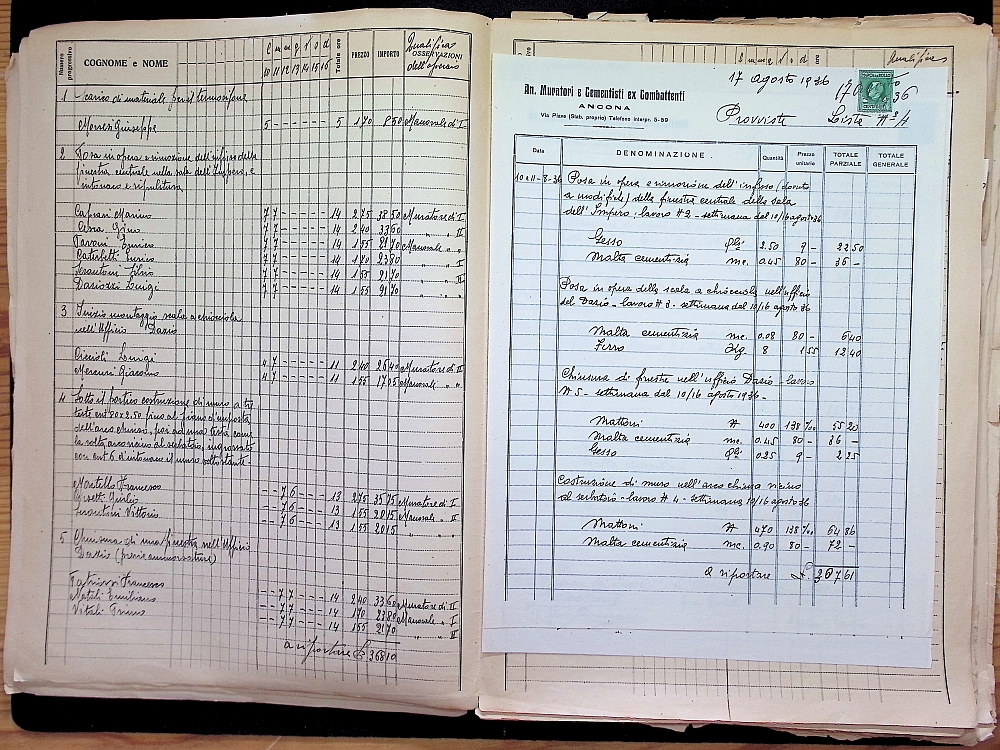 Numero progressivo COGNOME e NOME 10 11 12 13 14 15 16 Totale ore PREZZO IMPORTO OSSERVAZIONI
Qualifica dell'operaio
1 Scarico di materiale per il termosifone
Moresi Giuseppe 5 - - - - - - 5 1,70 8 50 Manovale di I
2 Posa in opera e rimozione dell'infisso della
finestra centrale nella sala dell'Impero, e
intonaco e ripulitura
Capiani Marino 7 7 - - - - - 14 2,75 38 50 Muratore di I
Cessa Gino 7 7 - - - - - 14 2,40 33 60 " " II
Enrico 7 7 - - - - - 14 1,55 21 70 Manovale " "
Enrico 7 7 - - - - - 14 1,70 23 80 " " I
7 7 - - - - - 14 1,55 21 70 " " II
Luigi 7 7 - - - - - 14 1,55 21 70 " "
3 Inizio montaggio scala a chiocciola
nell'Ufficio Dazio
Luigi 4 7 - - - - - 11 2,40 26 40 Muratore di II
Mercuri Giacomo 4 7 - - - - - 11 1,55 17 05 Manovale " "
4 Sotto il portico costruzione di muro a tre
teste cmt 80 x 2,50 fino al piano d'imposta
dell'arco chiuso, poi ad una testa come
la volta arco vicino al serbatoio, ingrossato
con cmt 6 d'intonaco il muro sottostante.
Montello Francesco - - 7 6 - - - 13 2,75 35 75 Muratore di I
Giulio - - 7 6 - - - 13 1,55 20 15 Manovale " II
Vittorio - - 7 6 - - - 13 1,55 20 15
5 Chiusura di una finestra nell'Ufficio
Dazio (previa ammorsature)
Francesco - - 7 7 - - - 14 2,40 33 60 Muratore di II
Natali Emiliano - - 7 7 - - - 14 1,70 23 80 Manovale " I
Vitali Primo - - 7 7 - - - 14 1,55 21 70 " " II
a riportare £ 368 10
Qualifica
17 agosto 1936
An. Muratori e Cementisti ex Combattenti
ANCONA
Via Piave (Stab. proprio) Telefono interpr. 5-89
Provviste Lista N° 4
Data DENOMINAZIONE. Quantità Prezzo unitario TOTALE PARZIALE TOTALE GENERALE
10 e 11-8-36 Posa in opera e rimozione dell'infisso (dovuto
a modifiche) della finestra centrale della sala
dell'Impero, lavoro N 2 - settimana dal 10/16 agosto 36
Gesso Qli 2.50 9 - 22 50
Malta cementizia mc. 0.45 80 - 36 -
Posa in opera della scala a chiocciola nell'ufficio
del Dazio - lavoro N 3 - settimana dal 10/16 agosto 36
Malta cementizia mc. 0.08 80 - 6 40
Ferro Kg. 8 1 55 12 40
Chiusura di finestre nell'ufficio Dazio - lavoro
N 5 - settimana dal 10/16 agosto 1936 -
Mattoni N 400 138 %o 55 20
Malta cementizia mc. 0.45 80 - 36 -
Gesso Qli 0.25 9 - 2 25
Costruzione di muro nell'arco chiuso vicino
al serbatoio - lavoro N 4 - settimana 10/16 agosto 36
Mattoni N 470 138 %o 64 86
Malta cementizia mc. 0.90 80 - 72 -
A riportare £. 307 61